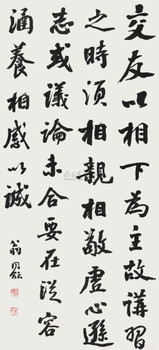 交友以相下為主故講習
之時須相親相敬虛心遜
志或議論未合要在從容
涵養相感以誠
翁同龢